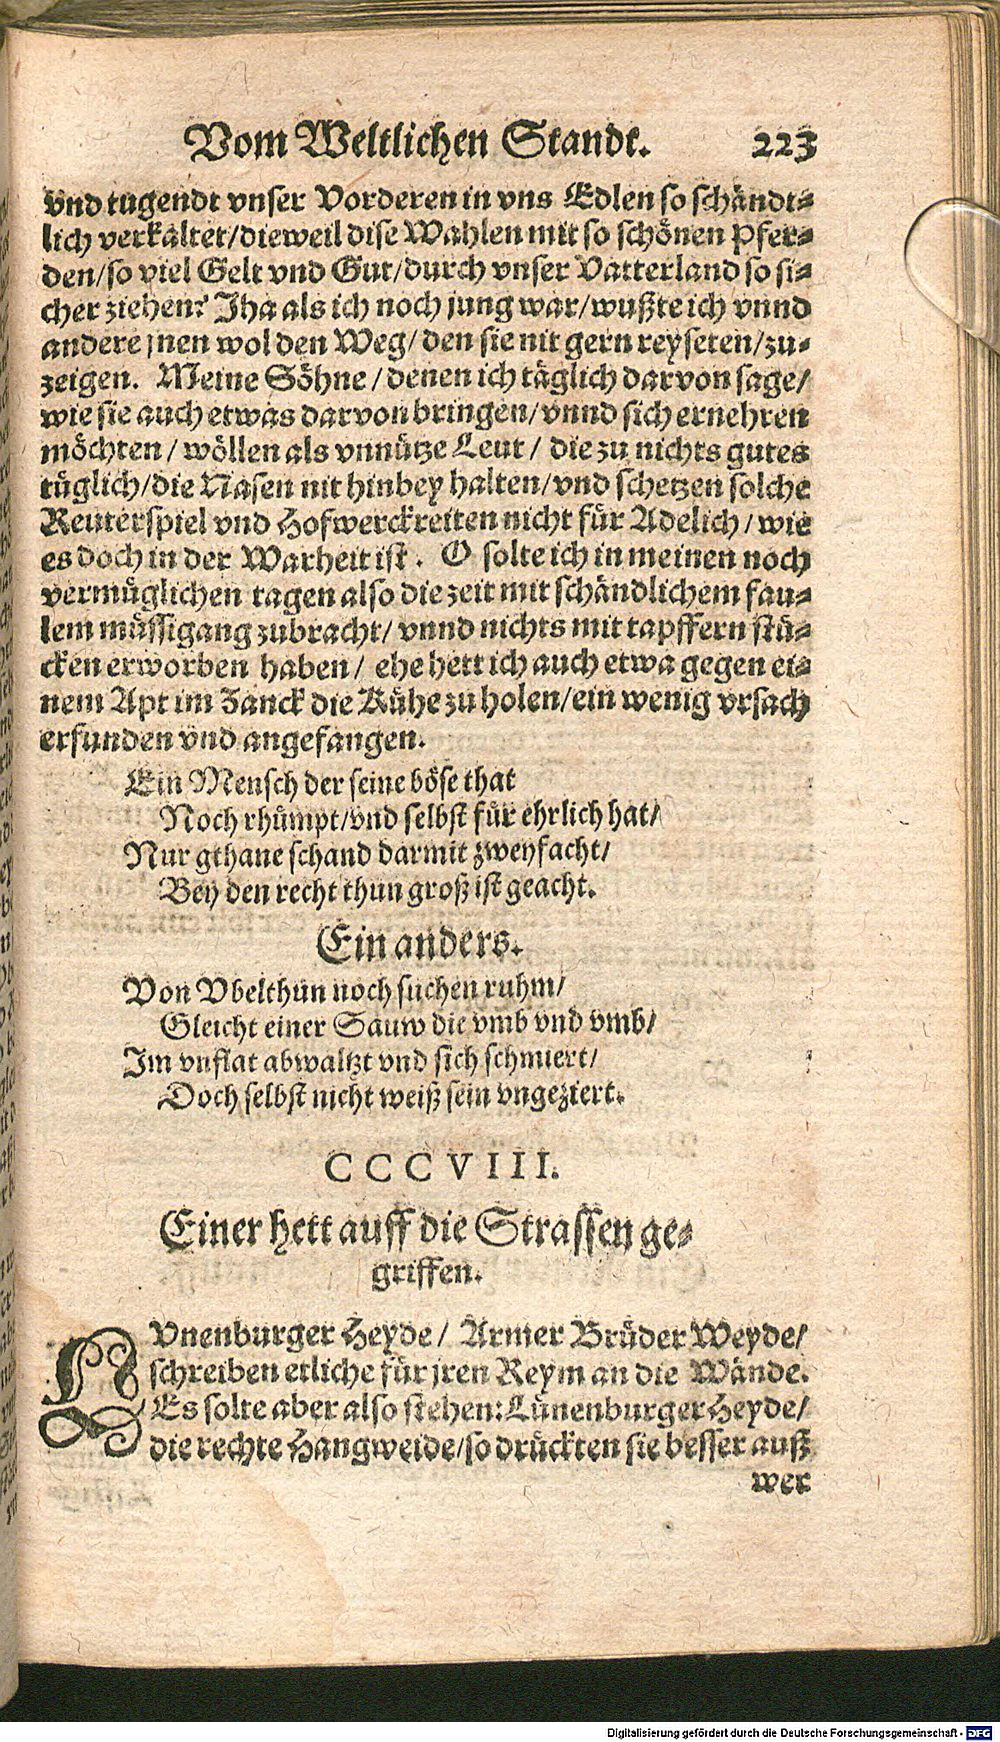 Vom Weltlichen Standt. 223
vnd tugendt vnser Vorderen in vns Edlen so schändt⸗
lich verkaltet/dieweil dise Wahlen mit so schönen Pfer⸗
den/so viel Gelt vnd Gut/durch vnser Vatterland so si⸗
cher ziehen? Jha als ich noch jung war/wußte ich vnnd
andere jnen wol den Weg/den sie nit gern reyseten/zu⸗
zeigen. Meine Söhne/denen ich täglich darvon sage/
wie sie auch etwas darvon bringen/vnnd sich ernehren
möchten/wöllen als vnnütze Leut/ die zu nichts gutes
tüglich/die Nasen nit hinbey halten/vnd schetzen solche
Reuterspiel vnd Hofwerckreiten nicht für Adelich/wie
es doch in der Warheit ist. O solte ich in meinen noch
vermüglichen tagen also die zeit mit schändlichem fau⸗
lem müssigang zubracht/vnnd nichts mit tapffern stü⸗
cken erworben haben/ ehe hett ich auch etwa gegen ei⸗
nem Apt im Zanck die Kühe zu holen/ein wenig vrsach
erfunden vnd angefangen.
Ein Mensch der seine böse that
Noch rhümpt/vnd selbst für ehrlich hat/
Nur gthane schand darmit zweyfacht/
Bey den recht thun groß ist geacht.
Ein anders.
Von Vbelthun noch suchen ruhm/
Gleicht einer Sauw die vmb vnd vmb/
Im vnflat abwaltzt vnd sich schmiert/
Doch selbst nicht weiß sein vngeziert.
CCCVIII.
Einer hett auff die Strassen ge⸗
griffen.
LVnenburger Heyde/ Armer Brüder Weyde/
schreiben etliche für jren Reym an die Wände.
Es solte aber also stehen: Lünenburger Heyde/
die rechte Hangweide/so drückten sie besser auß
wer
Digitalisierung gefördert durch die Deutsche Forschungsgemeinschaft - DFG